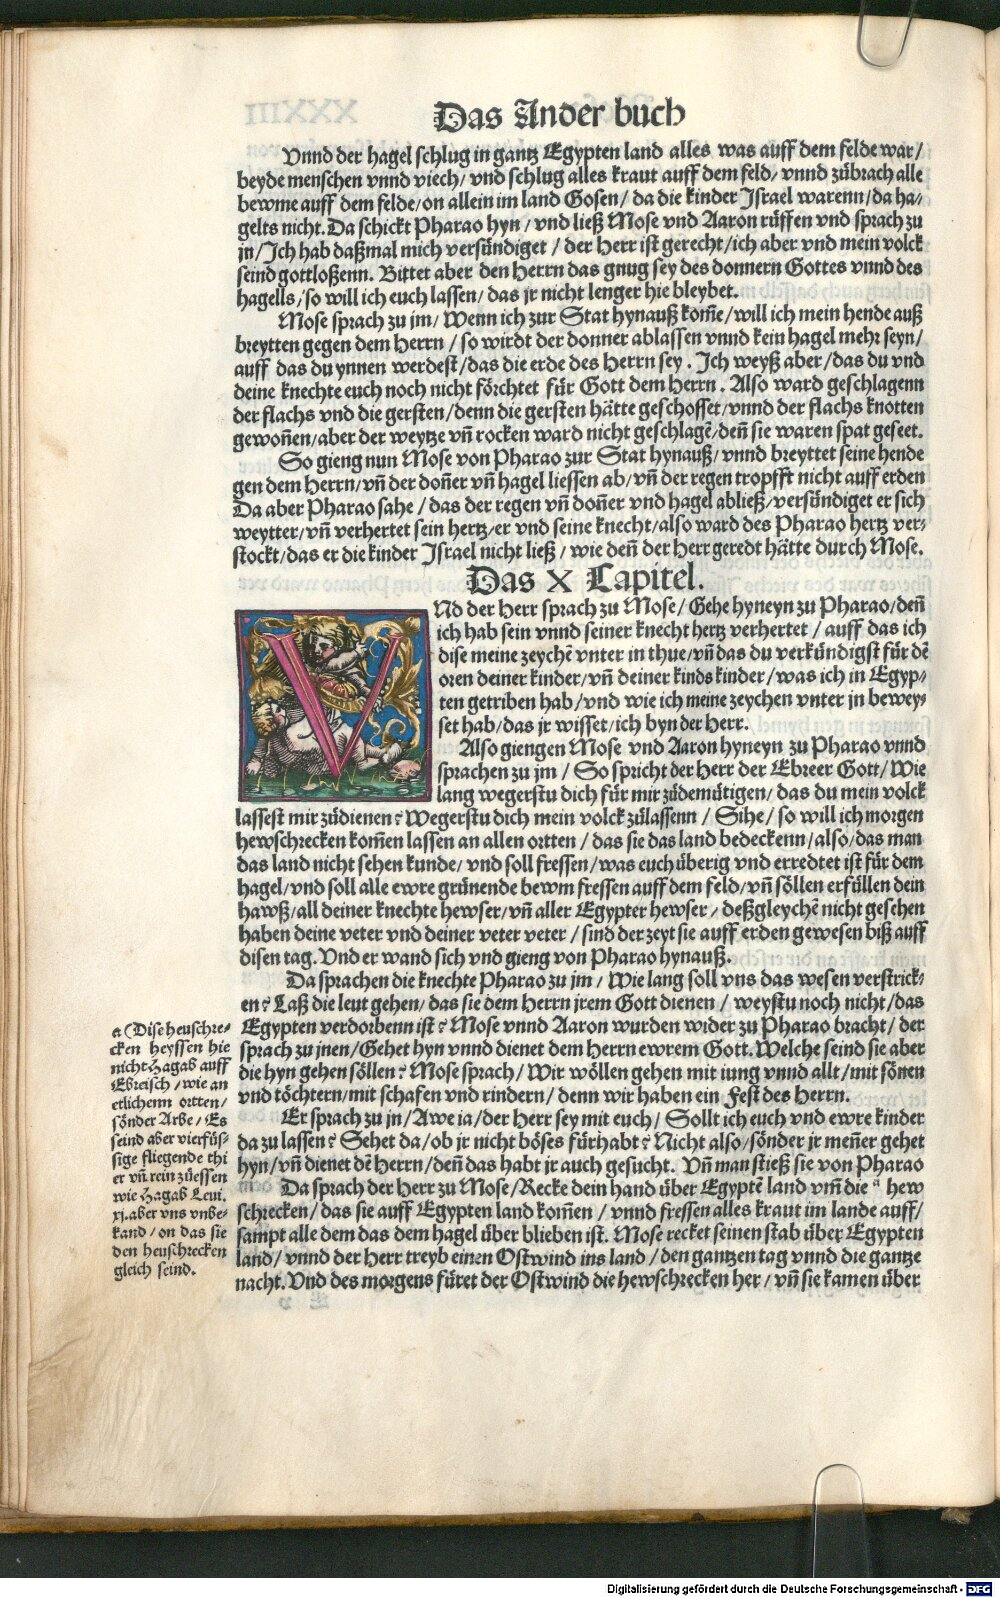 Das Ander buch
Vnnd der hagel schlug in gantz Egypten land alles was auff dem felde war/
beyde menschen vnnd viech/ vnd schlug alles kraut auff dem feld/ vnnd zůbrach alle
bewme auff dem felde/ on allein im land Gosen/ da die kinder Israel warenn/ da ha⸗
gelts nicht. Da schickt Pharao hyn/ vnd ließ Mose vnd Aaron růffen vnd sprach zu
in/ Ich hab daßmal mich versündiget/ der Herr ist gerecht/ ich aber vnd mein volck
seind gottloßenn. Bittet aber den Herrn das gnug sey des donnern Gottes vnnd des
hagells/ so will ich euch lassen/ das jr nicht lenger hie bleybet.
Mose sprach zu jm/ Wenn ich zur Stat hynauß kom̃e/ will ich mein hende auß
breytten gegen dem Herrn/ so wirdt der donner ablassen vnnd kein hagel mehr seyn/
auff das du ynnen werdest/ das die erde des Herrn sey. Ich weyß aber/ das du vnd
deine knechte euch noch nicht förchtet für Gott dem Herrn. Also ward geschlagenn
der flachs vnd die gersten/ denn die gersten hätte geschosset/ vnnd der flachs knotten
gewoñen/ aber der weytze vñ rocken ward nicht geschlagẽ/ deñ sie waren spat geseet.
So gieng nun Mose von Pharao zur Stat hynauß/ vnnd breyttet seine hende
gen dem Herrn/ vñ der doñer vñ hagel liessen ab/ vñ der regen tropfft nicht auff erden
Da aber Pharao sahe/ das der regen vñ doñer vnd hagel abließ/ versündiget er sich
weytter/ vñ verhertet sein hertz/ er vnd seine knecht/ also ward des Pharao hertz ver⸗
stockt/ das er die kinder Israel nicht ließ/ wie deñ der Herr geredt hätte durch Mose.
Das X Capitel.
VNd der Herr sprach zu Mose/ Gehe hyneyn zu Pharao/ deñ
ich hab sein vnnd seiner knecht hertz verhertet/ auff das ich
dise meine zeychẽ vnter in thue/ vñ das du verkündigst für dẽ
oren deiner kinder/ vñ deiner kinds kinder/ was ich in Egyp⸗
ten getriben hab/ vnd wie ich meine zeychen vnter in bewey⸗
set hab/ das jr wisset/ ich byn der Herr.
Also giengen Mose vnd Aaron hyneyn zu Pharao vnnd
sprachen zu jm/ So spricht der Herr der Ebreer Gott/ Wie
lang wegerstu dich für mir zůdemütigen/ das du mein volck
lassest mir zůdienen? Wegerstu dich mein volck zůlassenn/ Sihe/ so will ich morgen
hewschrecken kom̃en lassen an allen ortten/ das sie das land bedeckenn/ also/ das man
das land nicht sehen kunde/ vnd soll fressen/ was euch überig vnd erredtet ist für dem
hagel/ vnd soll alle ewre grünende bewm fressen auff dem feld/ vñ söllen erfüllen dein
hawß/ all deiner knechte hewser/ vñ aller Egypter hewser/ deßgleychẽ nicht gesehen
haben deine veter vnd deiner veter veter/ sind der zeyt sie auff erden gewesen biß auff
disen tag. Vnd er wand sich vnd gieng von Pharao hynauß.
Da sprachen die knechte Pharao zu jm/ Wie lang soll vns das wesen verstrick⸗
en? Laß die leut gehen/ das sie dem Herrn jrem Gott dienen/ weystu noch nicht/ das
Egypten verdorbenn ist? Mose vnnd Aaron wurden wider zu Pharao bracht/ der
sprach zu jnen/ Gehet hyn vnnd dienet dem Herrn ewrem Gott. Welche seind sie aber
die hyn gehen söllen? Mose sprach/ Wir wöllen gehen mit iung vnnd allt/ mit sönen
vnd töchtern/ mit schafen vnd rindern/ denn wir haben ein Fest des Herrn.
Er sprach zu in/ Awe ia/ der Herr sey mit euch/ Sollt ich euch vnd ewre kinder
da zu lassen? Sehet da/ ob jr nicht böses fürhabt? Nicht also/ sönder jr meñer gehet
hyn/ vñ dienet dẽ Herrn/ deñ das habt jr auch gesucht. Vñ man stieß sie von Pharao
Da sprach der Herr zu Mose/ Recke dein hand über Egyptẽ land vm̃ die ᵃ hew
schrecken/ das sie auff Egypten land kom̃en/ vnnd fressen alles kraut im lande auff/
sampt alle dem das dem hagel über blieben ist. Mose recket seinen stab über Egypten
land/ vnnd der Herr treyb einen Ostwind ins land/ den gantzen tag vnnd die gantze
nacht. Vnd des morgens füret der Ostwind die hewschrecken her/ vñ sie kamen über
a (Dise heuschre⸗
cken heyssen hie
nicht Hagab auff
Ebreisch/ wie an
etlichenn ortten/
sönder Arbe/ Es
seind aber vierfüs⸗
sige fliegende thi
er vñ rein zůessen
wie Hagab Leui.
xj. aber vns vnbe⸗
kand/ on das sie
den heuschrecken
gleich seind.
Digitalisierung gefördert durch die Deutsche Forschungsgemeinschaft - DFG